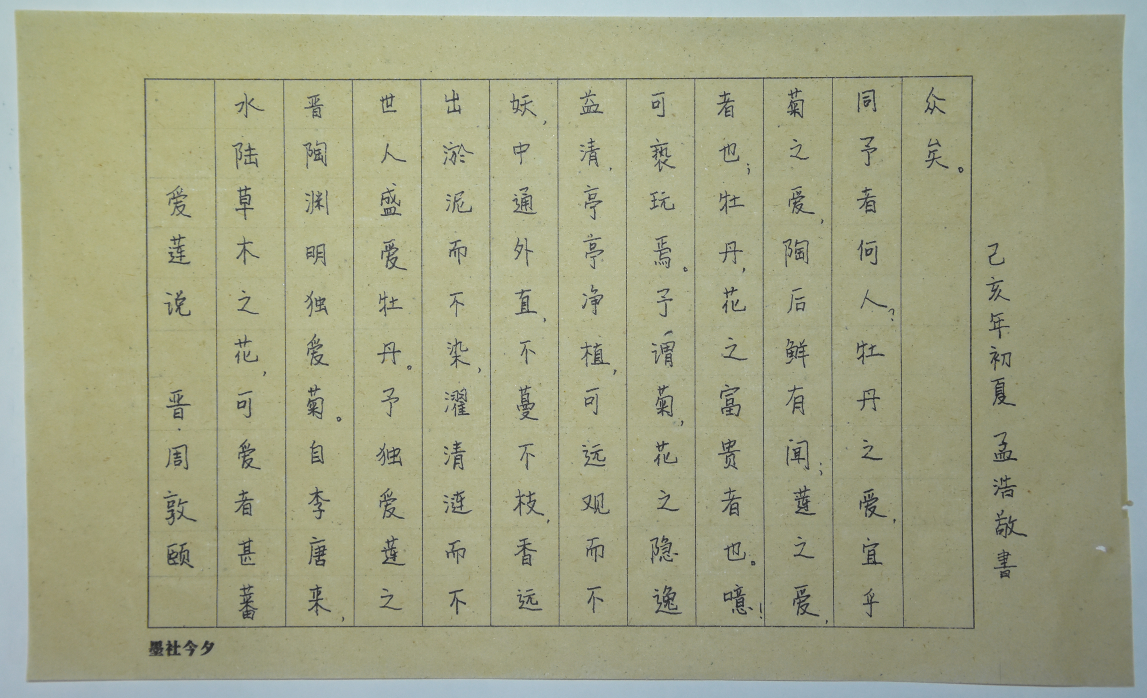 爱莲说 晋·周敦颐
水陆草木之花，可爱者甚蕃
晋陶渊明独爱菊。自李唐来，
世人盛爱牡丹。予独爱莲之
出淤泥而不染，濯清涟而不
妖，中通外直，不蔓不枝，香远
益清，亭亭净植，可远观而不
可亵玩焉。予谓菊，花之隐逸
者也；牡丹，花之富贵者也。噫！
菊之爱，陶后鲜有闻；莲之爱，
同予者何人？牡丹之爱，宜乎
众矣。
己亥年初夏 孟浩敬書
墨社今夕